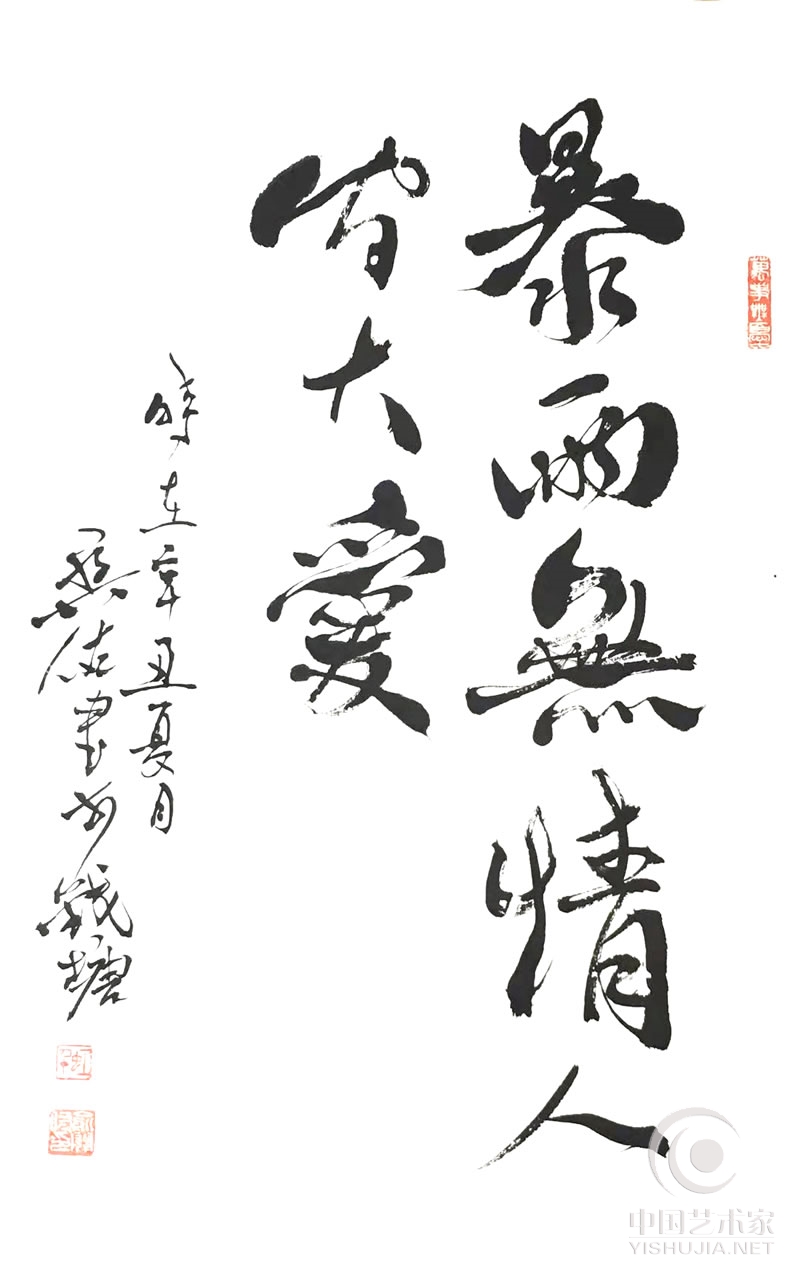 暴雨無情人
間大愛
時在辛丑夏月
書於錢塘
中国艺术家
YISHUJIA.NET